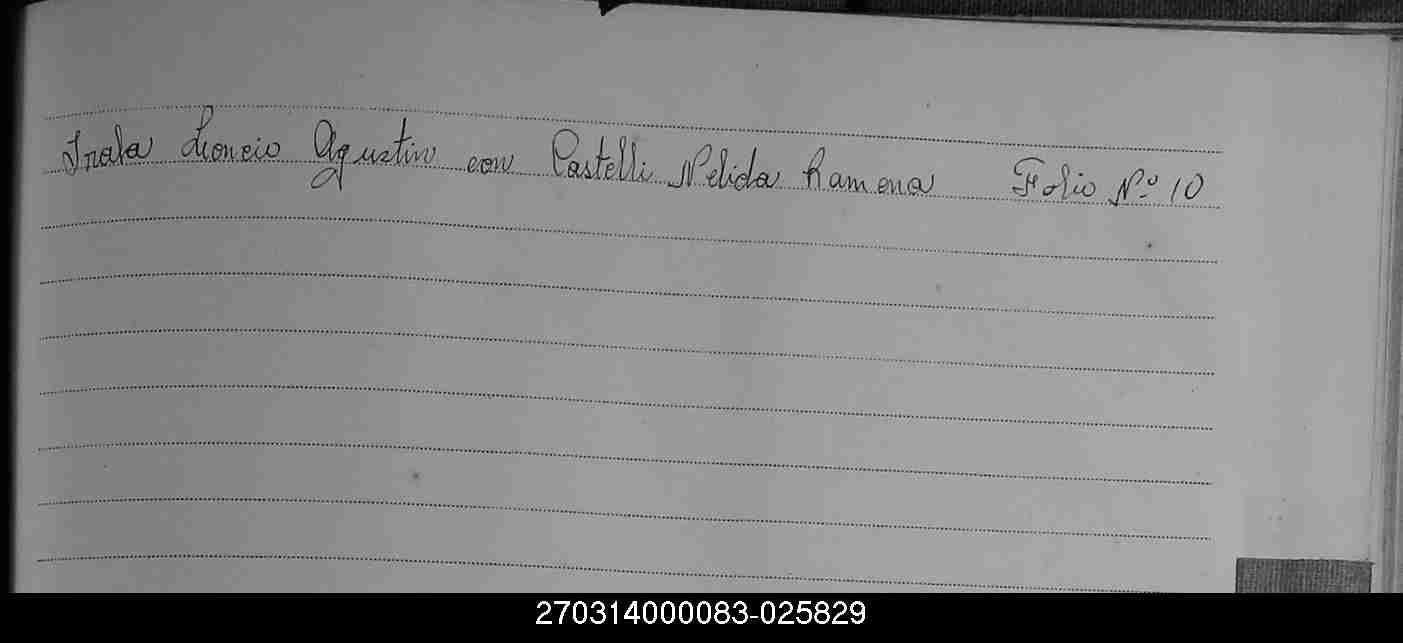 Irala Lioncio Agustin con Castelli Nelida Ramona Folio Nº 10
270314000083-025829